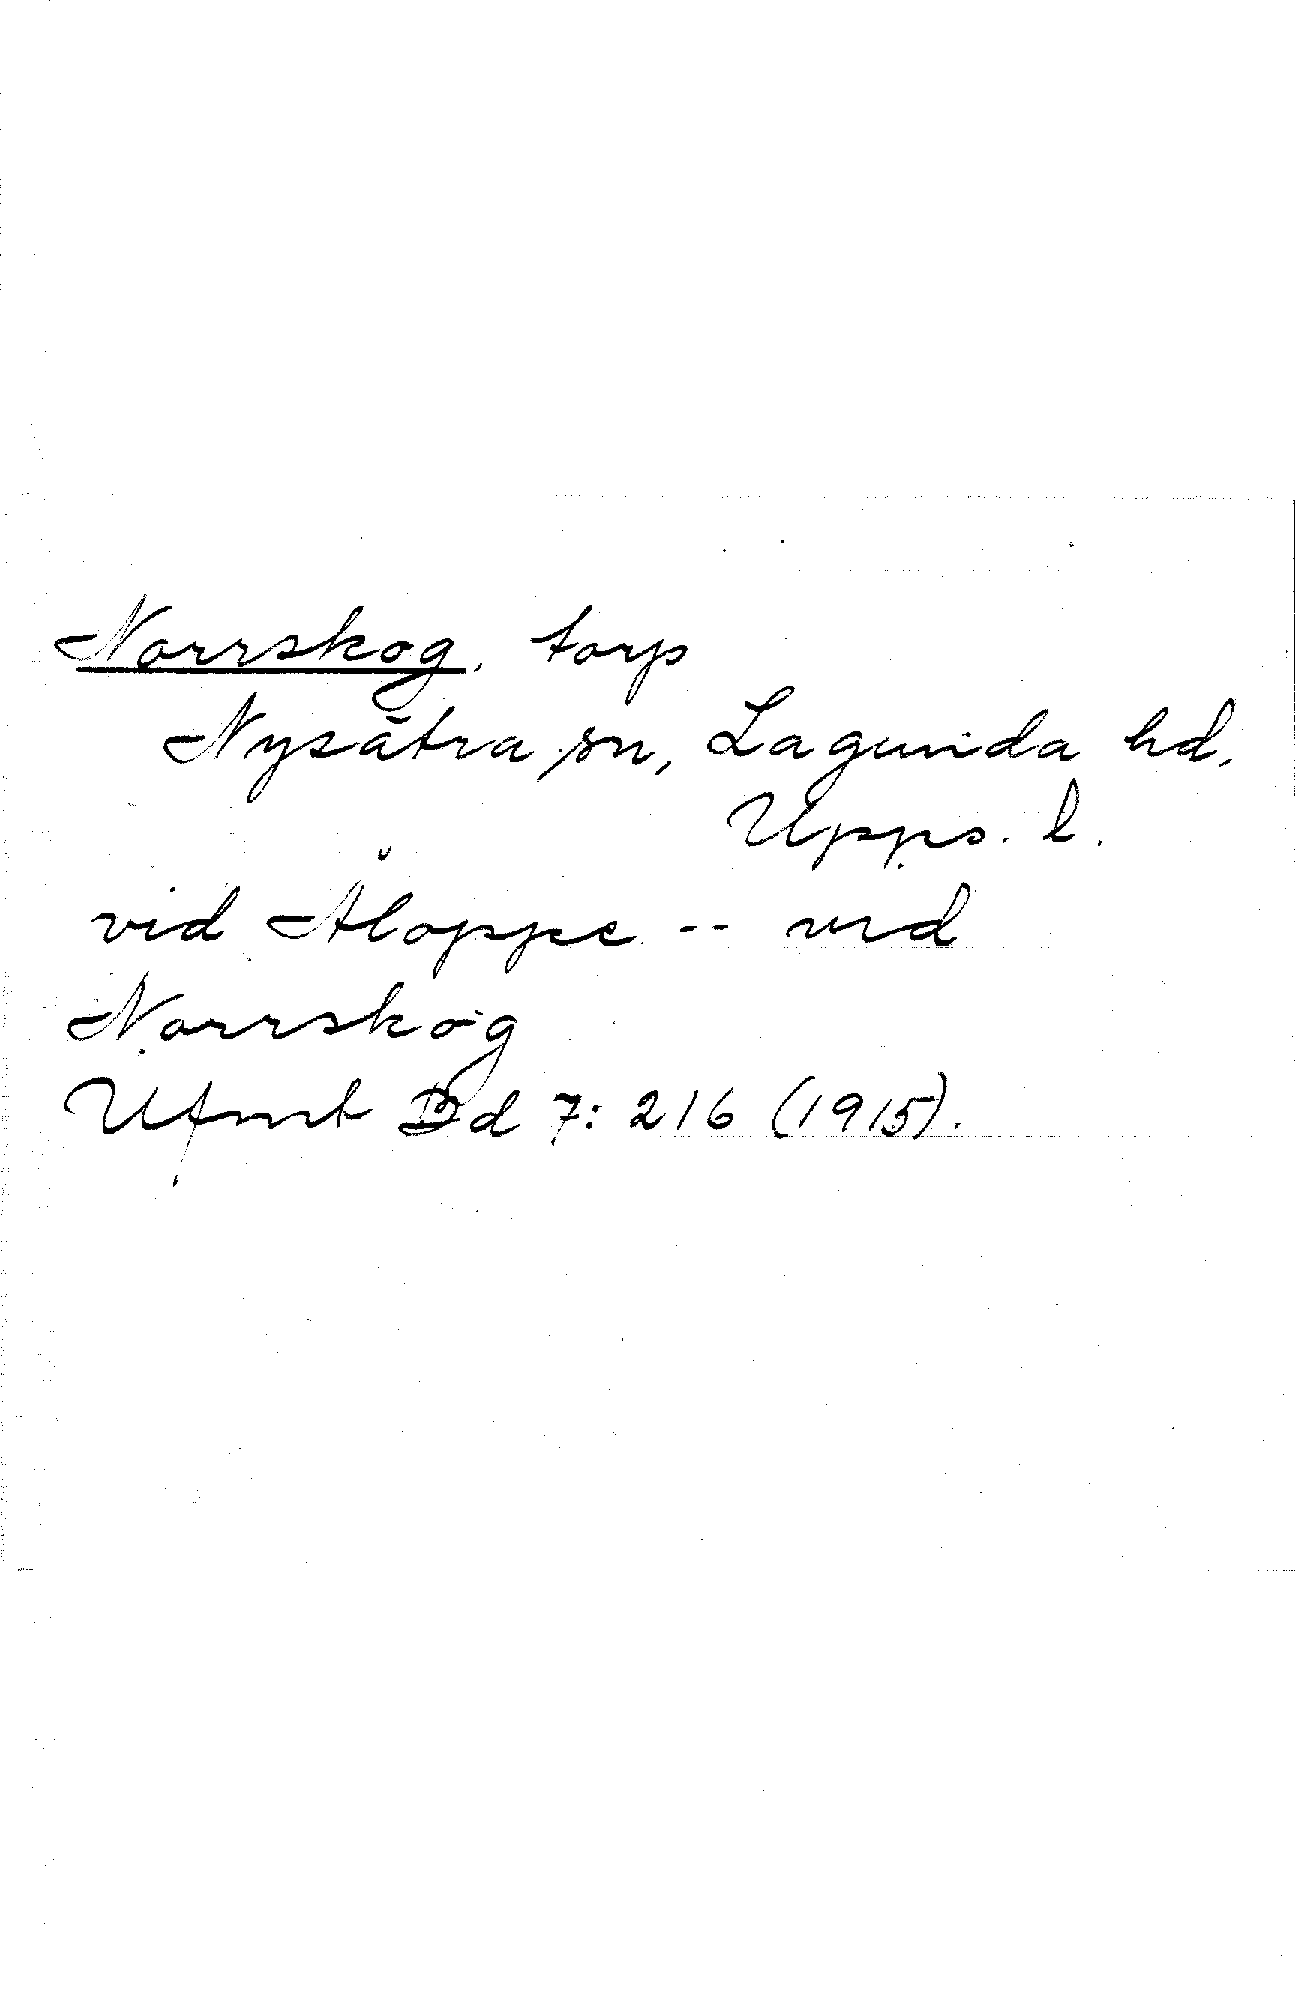 Norrskog, torp
Nysätra sn, Lagunda hd,
Upps. l.
vid Åloppe -- vid
Norrskog
Ufmt Bd 7: 216 (1915).